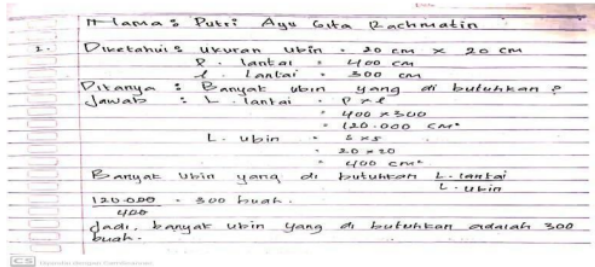 Nama : Putri Ayu Gita Rachmatin
1. Diketahui : ukuran ubin = 20 cm × 20 cm
P. lantai = 400 cm
l. Lantai = 300 cm
Ditanya : Banyak ubin yang di butuhkan ?
Jawab : L. lantai = P × l
= 400 × 300
= 120.000 cm²
L. ubin = s × s
= 20 × 20
= 400 cm²
Banyak Ubin yang di butuhkan L. lantai
L. ubin
120.000 = 300 buah.
400
Jadi, banyak ubin yang di butuhkan adalah 300
buah.
CS